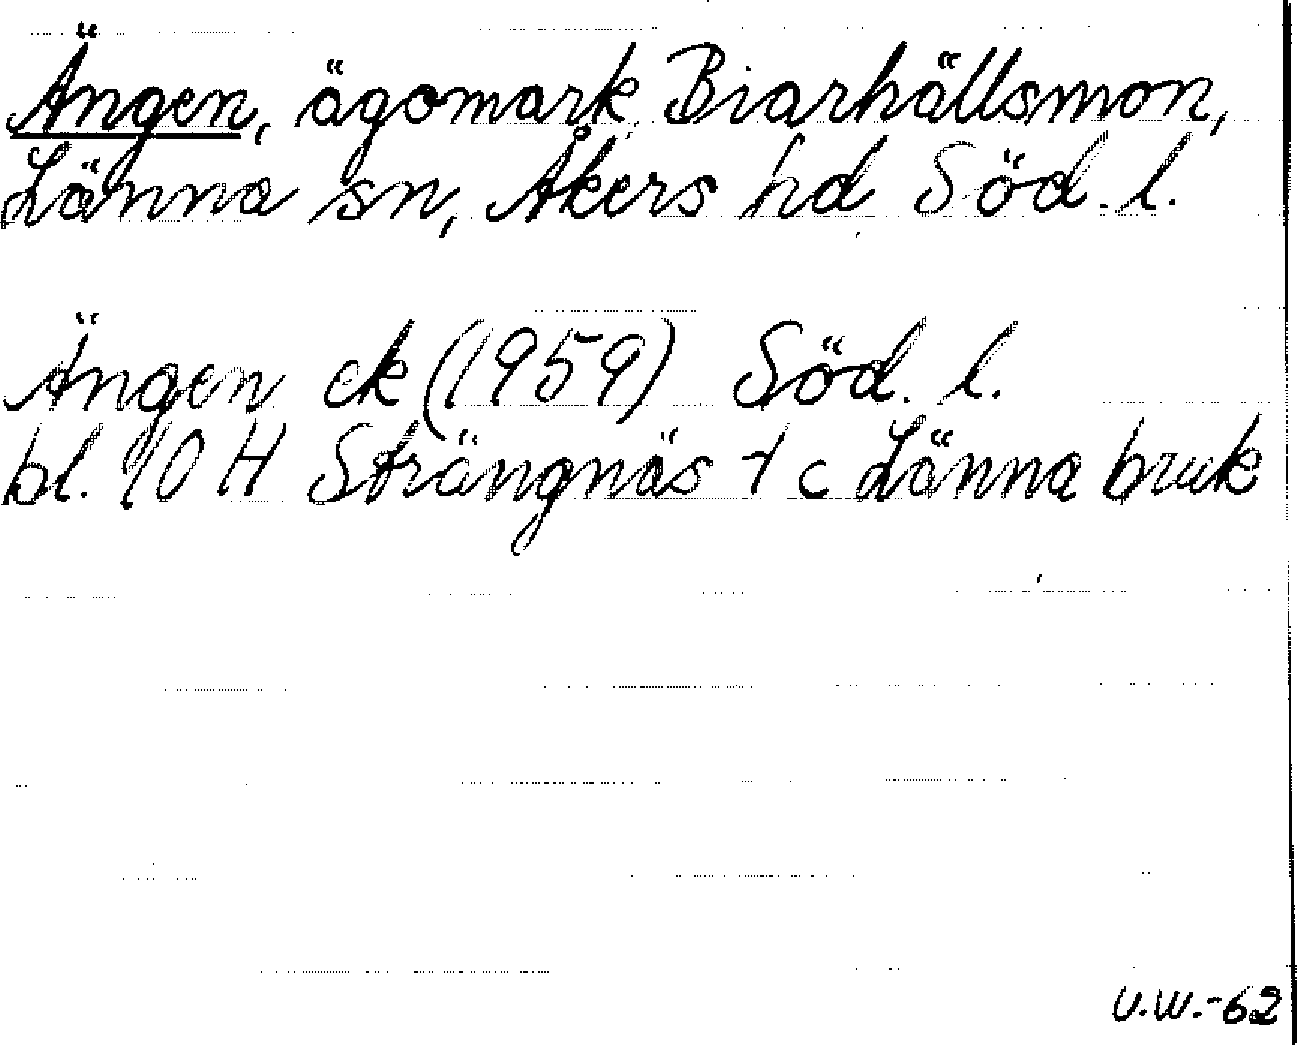 Ängen, ägomark Biarhällsmon,
Länna sn, Åkers hd Söd. l.
Ängen ek (1959) Söd. l.
bl. 10 H Strängnäs 7 c Länna bruk
U.W.-62